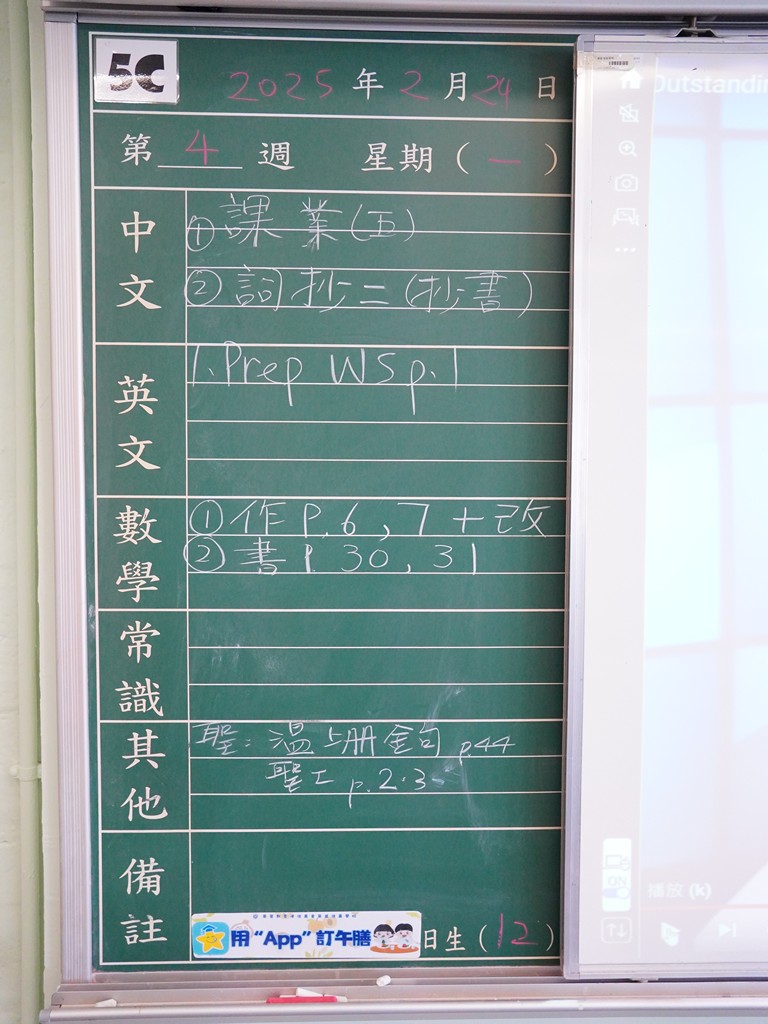 5C
2025年2月24日
第4週 星期(一)
中文
①課業(五)
②詞抄二(抄書)
英文
1.Prep WS p.1
數學
①作P.6,7+改
②書P.30,31
常識
其他
聖:溫上册金句 p.44
聖工 p.2-3
備註
用“App”訂午膳
日生(12)
Outstandin
ON
播放 (k)